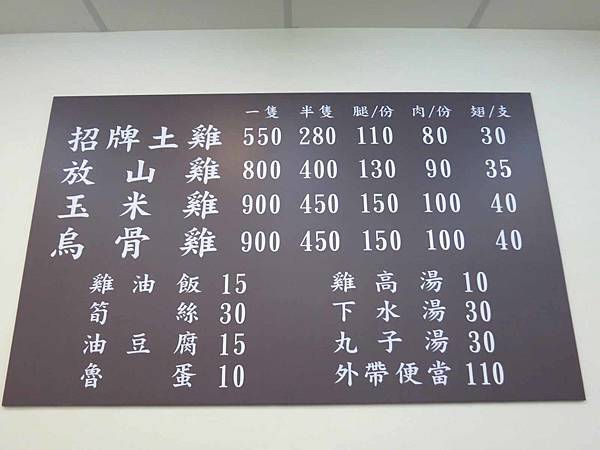 一隻 半隻 腿/份 肉/份 翅/支
招牌土雞 550 280 110 80 30
放山雞 800 400 130 90 35
玉米雞 900 450 150 100 40
烏骨雞 900 450 150 100 40
雞油飯 15 雞高湯 10
筍絲 30 下水湯 30
油豆腐 15 丸子湯 30
魯蛋 10 外帶便當 110